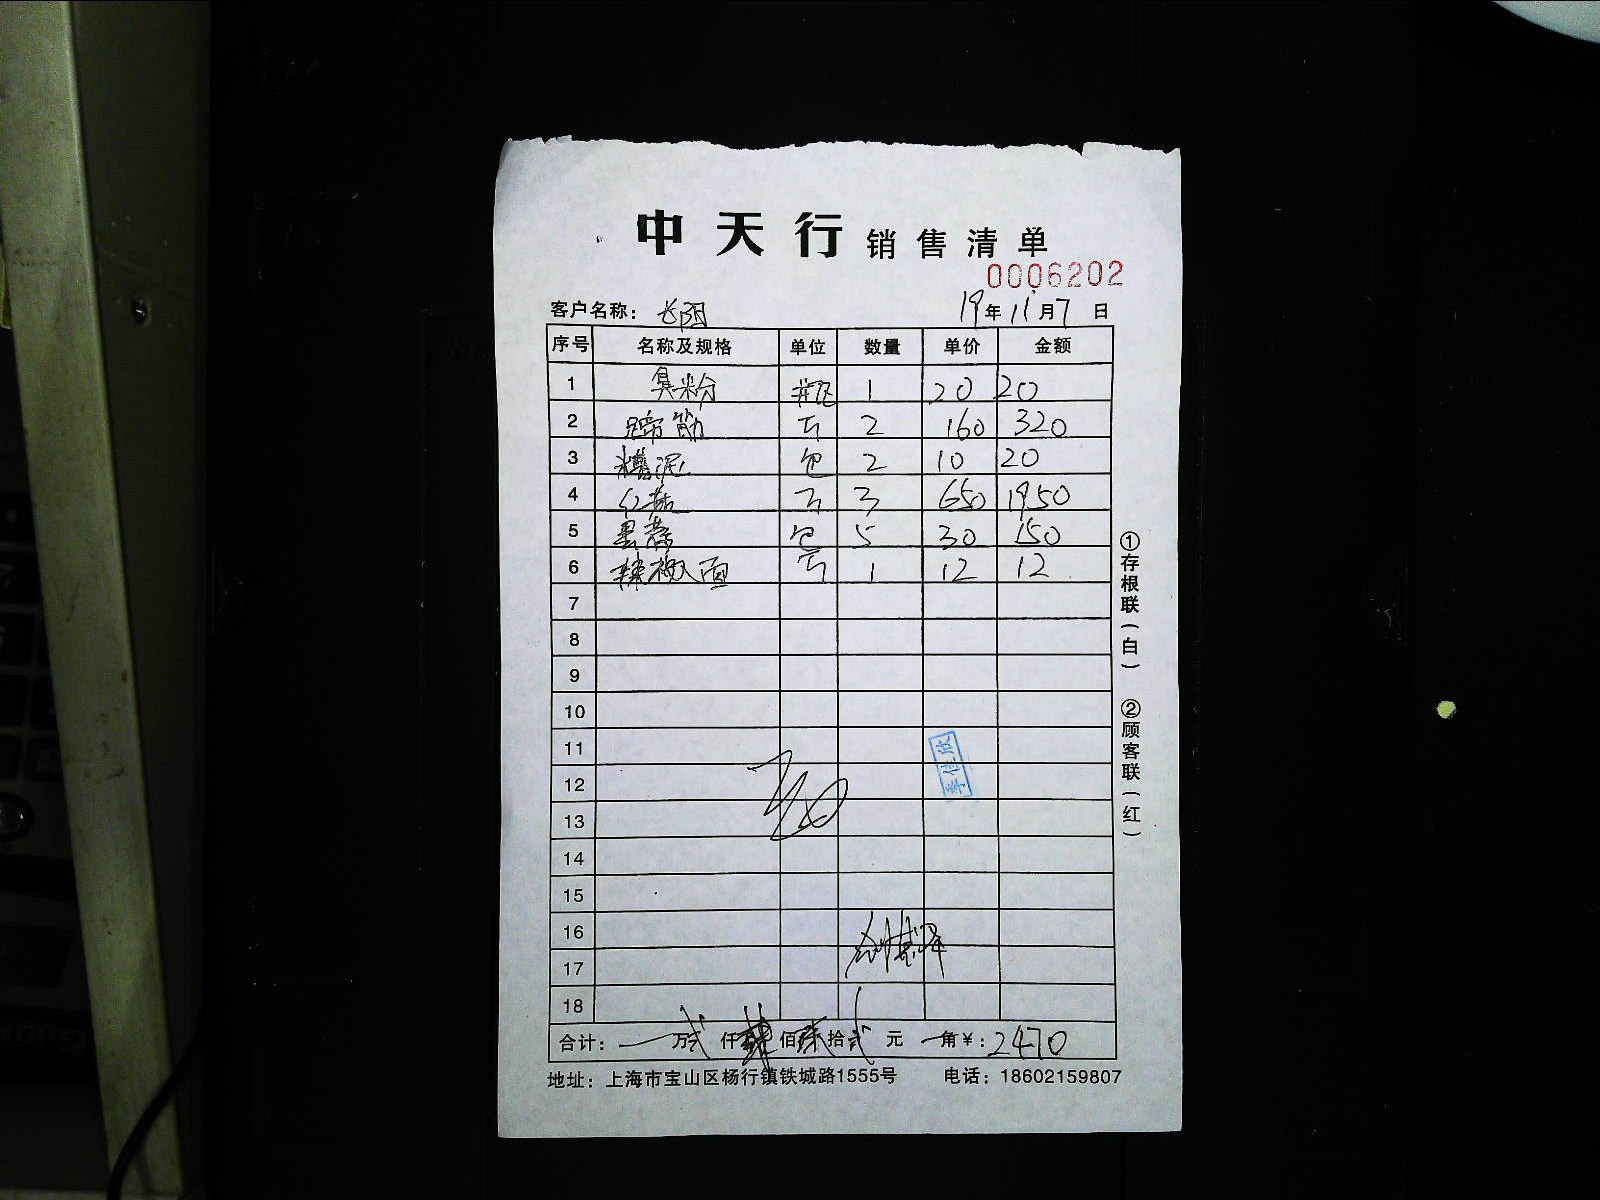 中天行 销售清单
0006202
客户名称： 长阳 19年11月7日
序号 名称及规格 单位 数量 单价 金额
1 臭粉 瓶 1 20 20
2 蹄筋 斤 2 160 320
3 糟泥 包 2 10 20
4 红菇 斤 3 650 1950
5 黑蒜 包 5 30 150
6 辣椒面 斤 1 12 12
7
8
9
10
11
12
13
14
15
16
17
18
李佳欣
合计： 万贰仟肆佰柒拾贰元 角￥：2470
地址：上海市宝山区杨行镇铁城路1555号 电话：18602159807
①存根联（白） ②顾客联（红）